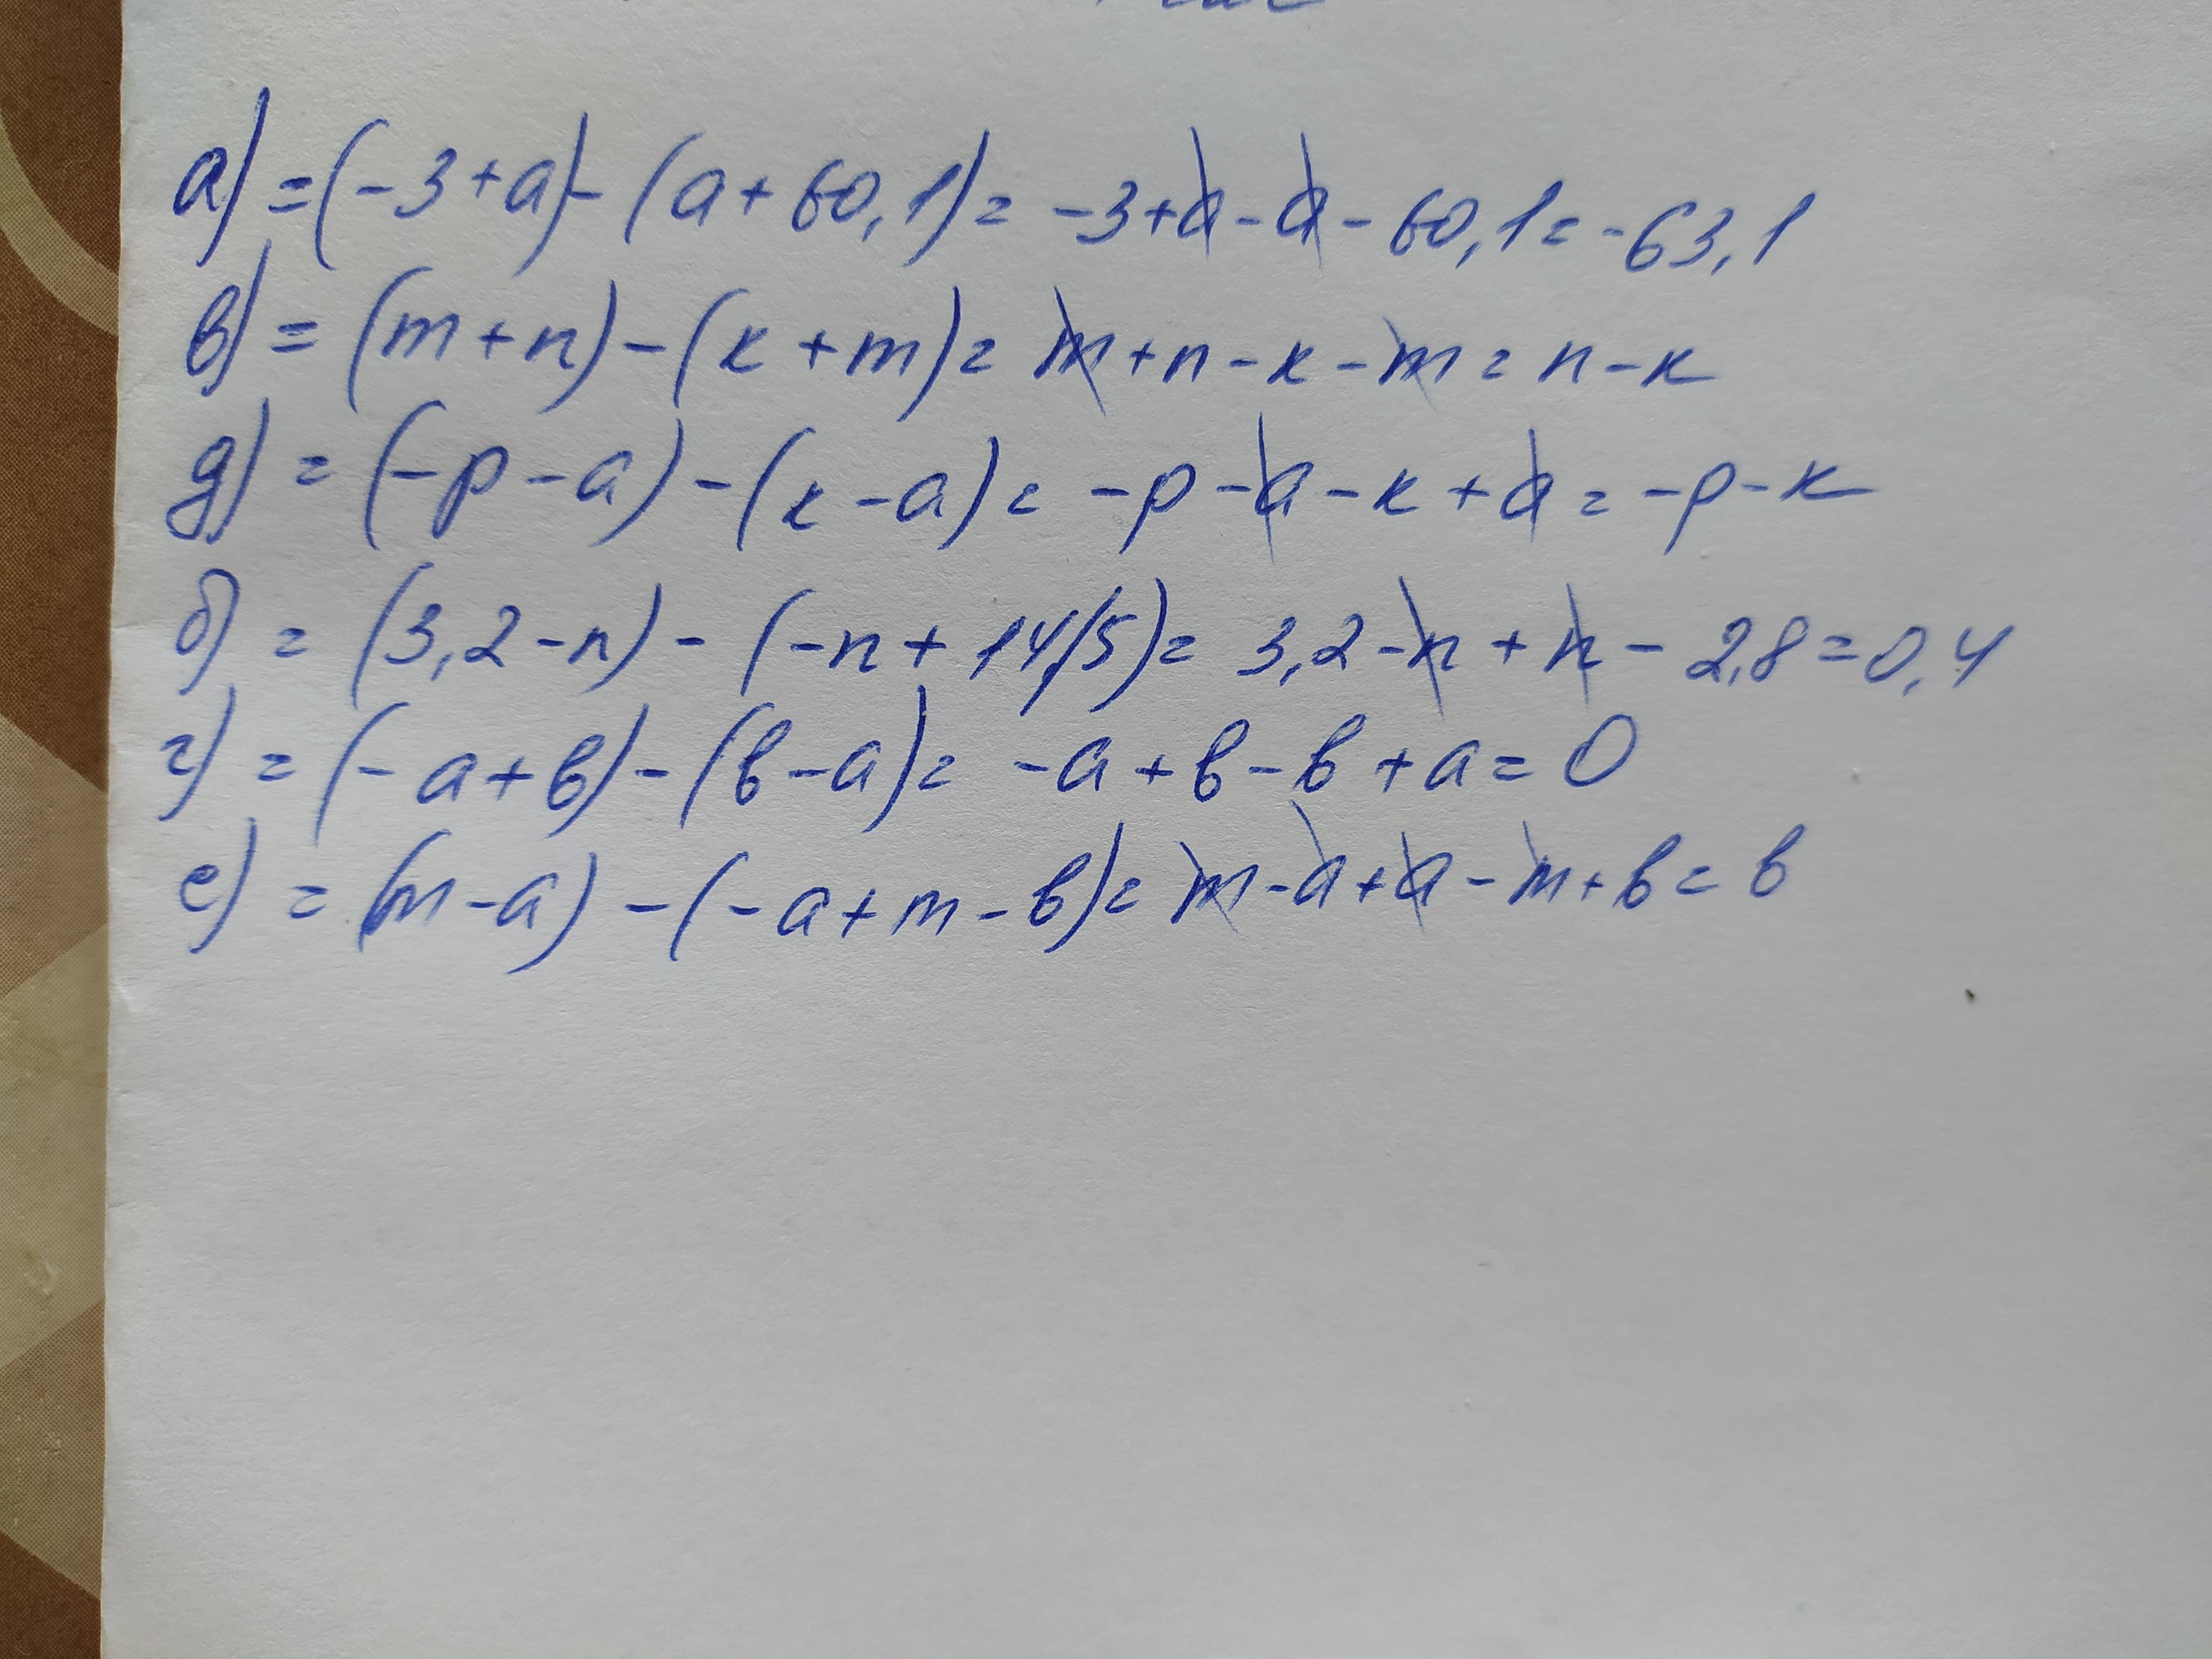 а) = (-3+a) - (a+60,1) = -3+a-a-60,1 = -63,1
в) = (m+n) - (к+m) = m+n-к-m = n-к
д) = (-p-a) - (к-a) = -p-a-к+a = -p-к
б) = (3,2-n) - (-n+14/5) = 3,2-n+n-2,8=0,4
г) = (-a+в) - (в-a) = -a+в-в+a=0
е) = (m-a) - (-a+m-в) = m-a+a-m+в = в